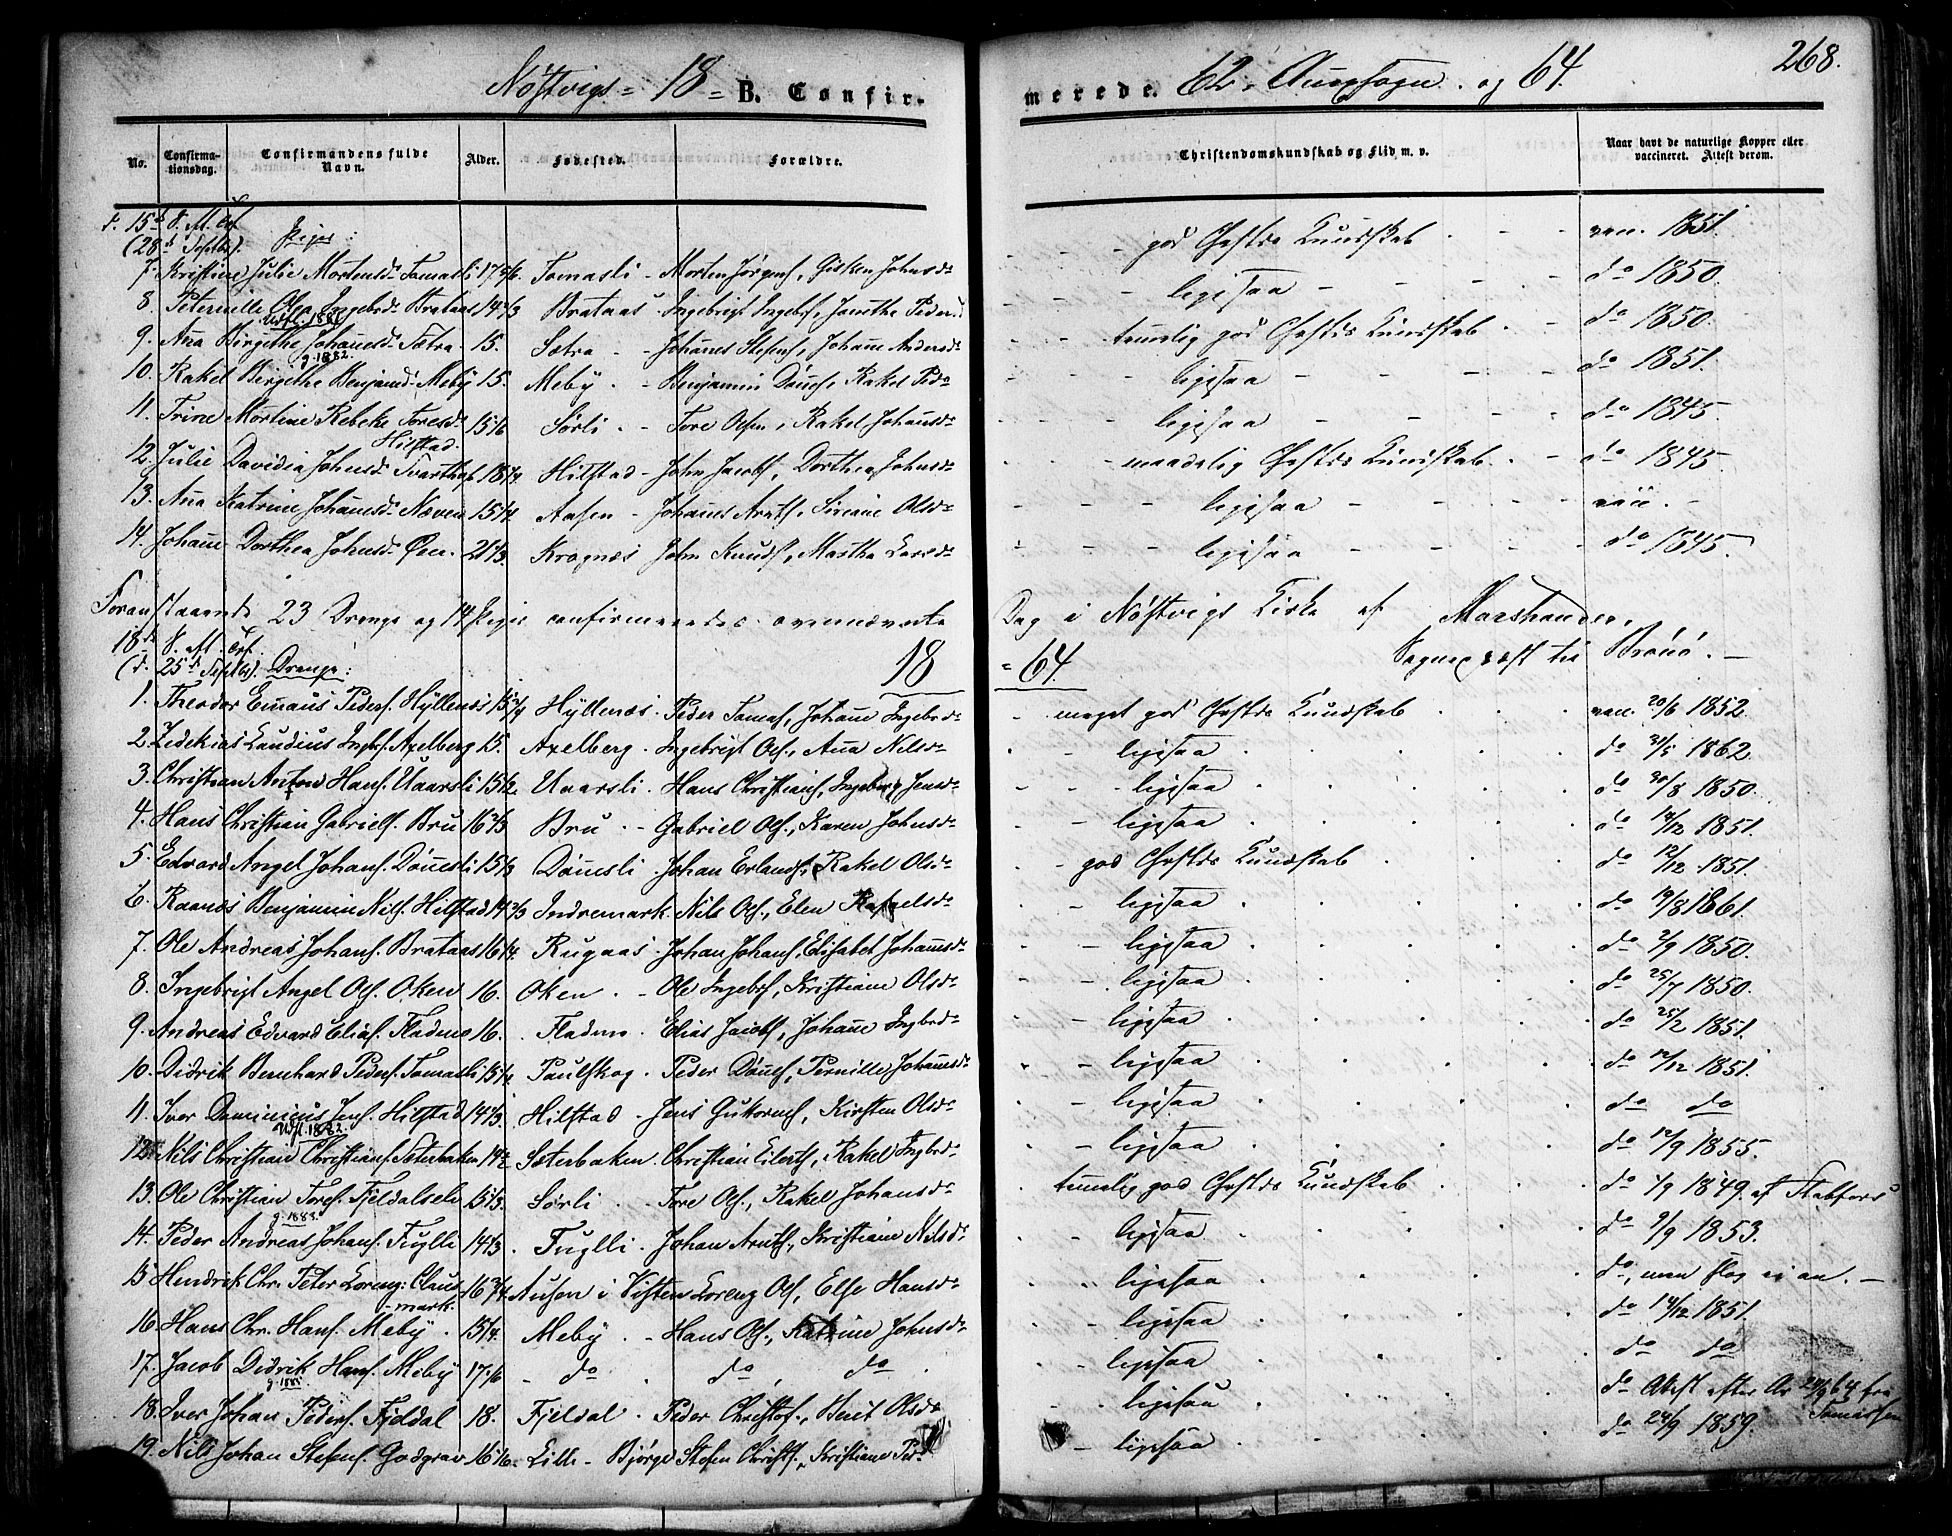 268.
Nöstvigs = 18 = B. Confirmerede. 62. Anexsogn. og 64.
No. Confirmationsdag. Confirmandens fulde Navn. Alder. Fødested. Forældre. Christendomskundskab og Flid m. v. Naar havt de naturlige Kopper eller vaccineret. Attest derom.
d. 15de S. M. Trf.
(28de Septbr). Piger:
7. Kristine Julie Mortensd. Tomasli Tomasli - Morten Jørgens., Gisken Johnsdr god Chrstds Kundskab vac. 1851.
8. Peternille Olea Ingebrd. Brataas 14 2/3 Brataas Ingebrigt Ingebrs., Janethe Peders ligesaa do 1850.
Udfl. 1881
9. Ana Birgithe Johansd. Sætra 15. Sætra - Johanes Stefens., Johane Andersdr temelig god Chrstds Kundskab do 1850.
g. 1882.
10. Rakel Birgithe Benjamd. Meby 15. Meby - Benjamin Dønes., Rakel Pedr ligesaa do 1851.
11. Trine Martine Rebeke Toresd. Sørli - Tore Olsen, Rakel Johansdr ligesaa do 1845.
Hilstad.
12. Julie Davidia Johnsd. Svarthop 18 1/4 Hilstad - John Jacobs., Dorthea Johnsdr maadelig Chrstds Kundskab do 1845.
13. Ana Katrine Johansd. Næven 15 1/4. Aasen - Johanes Arnts., Siriane Olsdr ligesaa vac.
14. Johane Dorthea Johnsd. Øren. 21 1/3. Kragnæs John Knuds., Martha Larsdr ligesaa do 1845.
Foranstaaende 23 Drenge og 14 Piger confirmeredes ovennævnte Dag i Nöstvigs Kirke af Marshander,
Sogneprest til Brønø.
18de S. M. Trf.
(d. 25de Septbr). Drenge: 18 = 64.
1. Theodor Emaus Peders. Hyllenæs 15 1/4 Hyllenæs. Peder Tomas., Johane Ingebrdr meget god Chrstds Kundskab vac. 20/6 1852.
2. Zedekias Laudius Ingbr. Axelberg 15. Axelberg. Ingebrigt Ols., Ana Nilsdr ligesaa do 31/5 1862.
3. Christian Anton Hans. Uaarsli 15 1/2. Uaarsli. Hans Christians., Ingeborg Jensdr ligesaa do 30/8 1850.
4. Hans Christian Gabriels. Bru 16 2/3 Bru. - Gabriel Ols., Karen Johnsdr ligesaa do 14/12 1851.
5. Edvard Angel Johans. Dønesli 15 1/3 Dønesli. Johan Erlands., Rakel Olsdr god Chrstds Kundskab do 12/12 1851.
6. Raanæs Benjamin Nils. Hilstad 14 2/3 Indremark Nils Ols., Elen Rafaelsdr ligesaa do 19/8 1861.
7. Ole Andreas Johans. Brataas 16 1/4. Rugaas. Johan Johans., Elisabet Johansdr ligesaa do 2/9 1850.
8. Ingebrigt Angel Ols. Oken 16. Oken. - Ole Ingebrs., Kristiane Olsdr ligesaa do 25/7 1850.
9. Andreas Edvard Elias. Fladmo 16. Fladmo. Elias Jacobs., Johane Ingbrdr ligesaa do 25/2 1851.
10. Didrik Bernhard Peders. Tomasli 15 1/2 Paulskog. Peder Dønes., Pernille Johansdr ligesaa do 12/12 1851.
11. Iver Dominicus Jens. Hilstad 14 1/3. Hilstad - Jens Guttorms., Kirsten Olsdr ligesaa do do
Udfl. 1882.
12. Nils Christian Christians. Sæterbaken 14 1/2 Sæterbaken. Christian Eilerts., Rakel Ingbrdr ligesaa do 12/9 1855.
13. Ole Christian Tores. Fjeldalselv 15 1/3. Sørli. Tore Ols., Rakel Johansdr temelig god Chrstds Kundskab do 1/9 1849 af Stabfors
g. 1883.
14. Peder Andreas Johans. Fuglli 14 1/3. Fuglli. Johan Arnts., Kristiane Nilsdr ligesaa do 9/9 1853.
15 Hendrik Chr. Peter Lorenz. Clausmark. 16 3/4 Ausen i Visten Lorenz Ols., Else Hansdr ligesaa do, men slog ei an.
16. Hans Chr. Hans. Meby. 15 1/4. Meby. - Hans Ols., Katrine Johnsdr ligesaa do 14/12 1851.
17. Jacob Didrik Hans. Meby 17 1/6 - do do do ligesaa do do
g. 1885
18. Iver Johan Peders. Fjeldal 18. Fjeldal. Peder Christof., Berit Olsdr ligesaa do Attest efter 64 fra Tomassen
19. Nils Johan Stefens. Godgrav 16 1/6. Lille - Bjørge Stefen Christs., Kristiane Pedr ligesaa do 24/9 1859.